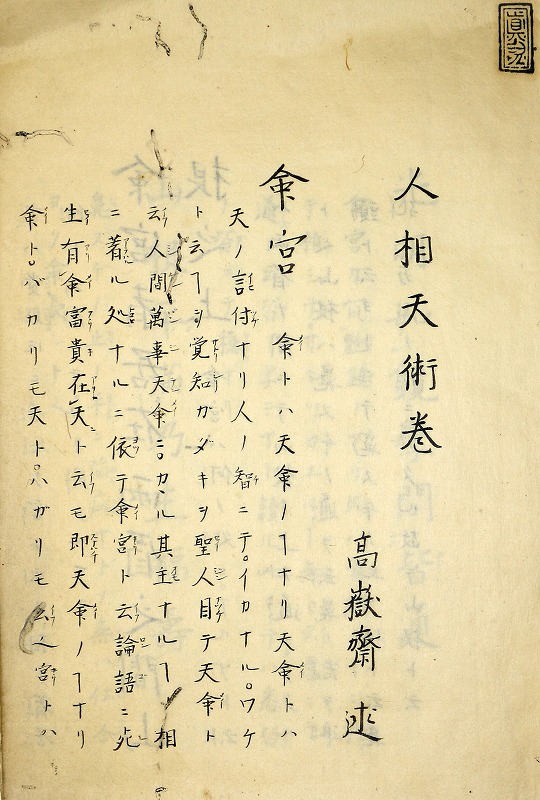 人相天術巻
高嶽齋述
命宮
命トハ天命ノヿナリ天命トハ
天ノ詔付ナリ人ノ智ニテ。イカナル。ワケ
ト云ヿヲ覚知ガタキヲ聖人目テ天命ト
云人間萬事天命ニ。カヽル其主ナルヿ相
ニ著ル処ナルニ依テ命宮ト云論語ニ死
生有命富貴在天ト云モ即天命ノヿナリ
命ト。バカリモ天ト。バカリモ云ヘ宮トハ